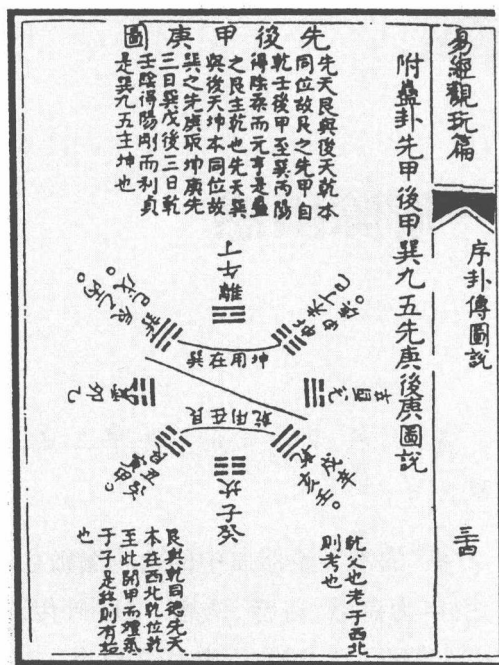 易經觀玩篇
序卦傳圖說
三四
附蠱卦先甲後甲巽九五先庚後庚圖說
先後甲庚圖
先天艮與後天乾本
同位故艮之先甲自
乾壬後甲至巽丙陽
得陰而元亨是蠱
之艮主乾也先天巽
與後天坤本同位故
巽之先庚取坤庚先
三日巽戊後三日乾
壬陰得陽剛而利貞
是巽九五主坤也
離午丁
坤用在巽
兌酉辛
震卯乙
艮在用乾
坎子癸
乾父也老于西北
則考也
艮與乾同德先天
本在西北乾位乾
至此開甲而氣
于子是終則有始
也